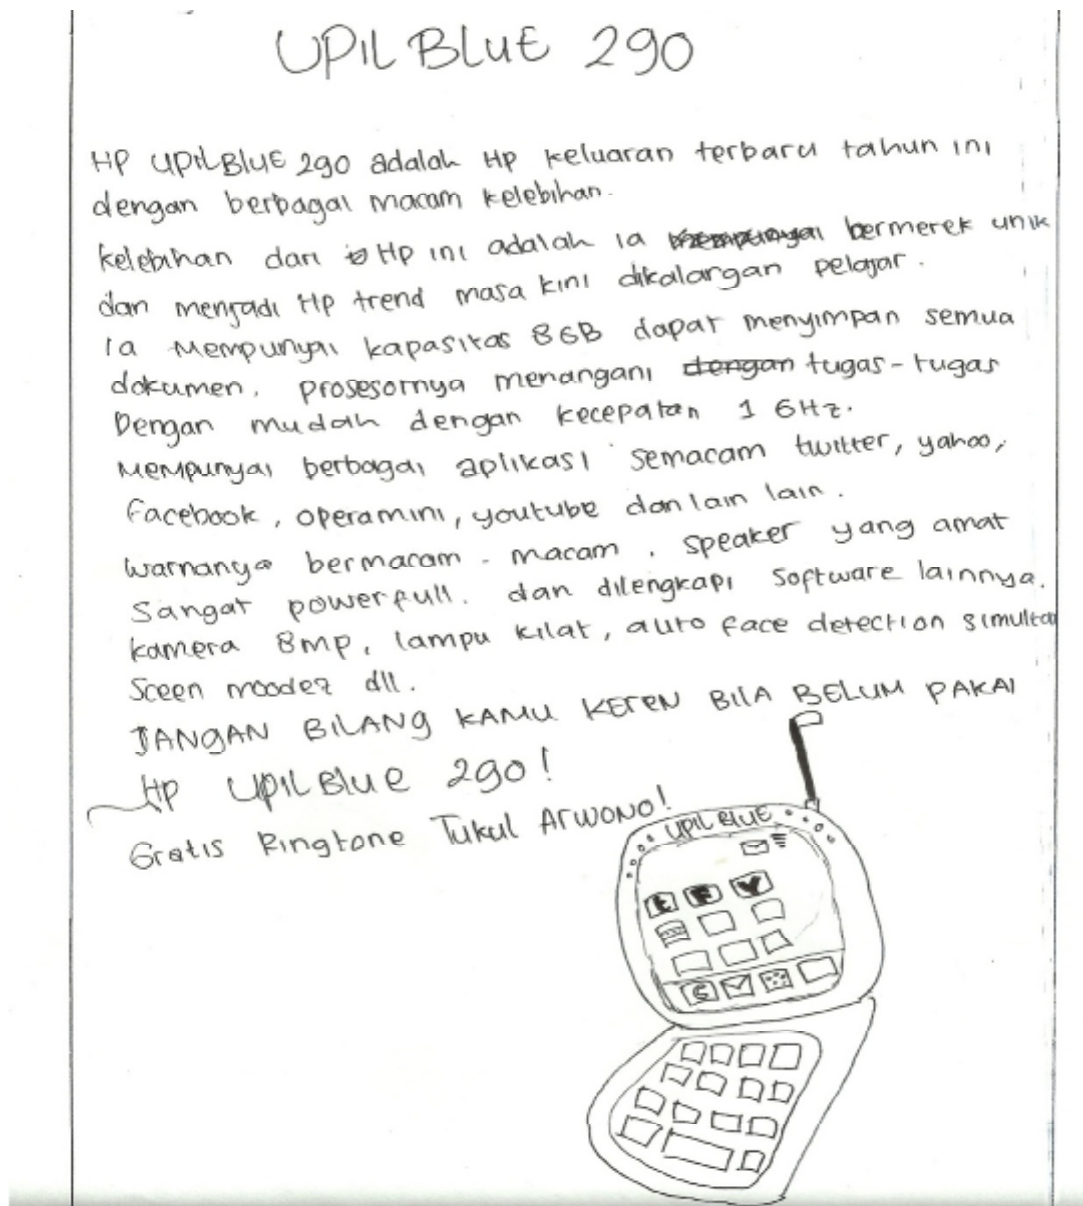 UPIL BLUE 290
HP UPILBLUE 290 adalah HP keluaran terbaru tahun ini
dengan berbagai macam kelebihan.
kelebihan dari HP ini adalah ia bermerek unik
dan menjadi HP trend masa kini dikalangan pelajar.
Ia mempunyai kapasitas 8GB dapat menyimpan semua
dokumen, prosesornya menangani dengan tugas-tugas
Dengan mudah dengan kecepatan 1 GHz.
Mempunyai berbagai aplikasi semacam twitter, yahoo,
facebook, operamini, youtube dan lain lain.
warnanya bermacam-macam. speaker yang amat
Sangat powerfull. dan dilengkapi software lainnya.
kamera 8mp, lampu kilat, auto face detection simulta
Sceen moodez dll.
JANGAN BILANG KAMU KEREN BILA BELUM PAKAI
HP UPILBLUE 290!
Gratis Ringtone Tukul ARWONO!
UPIL BLUE
t F Y